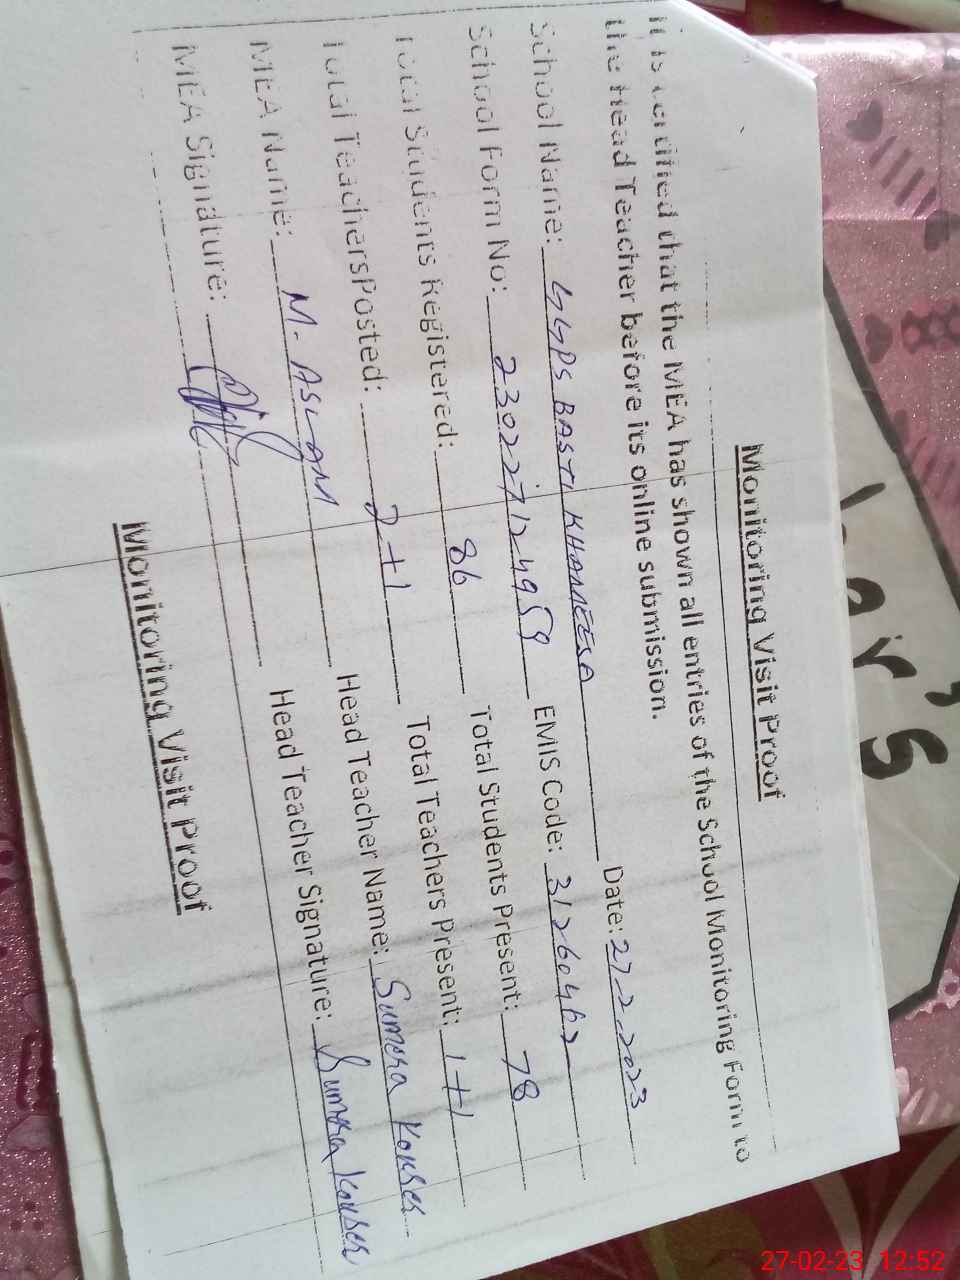 Monitoring Visit Proof
It is certified that the MEA has shown all entries of the School Monitoring Form to
the Head Teacher before its online submission.
School Name: GGPS BASTI KHAMEESA Date: 27.2.2023
School Form No: 230227124959 EMIS Code: 31260462
Total Students Registered: 86 Total Students Present: 78
Total TeachersPosted: 2+1 Total Teachers Present: 1+1
MEA Name: M. ASLAM Head Teacher Name: Sumera Kouser
MEA Signature: Head Teacher Signature: Sumera Kouser
Monitoring Visit Proof
27-02-23 12:52